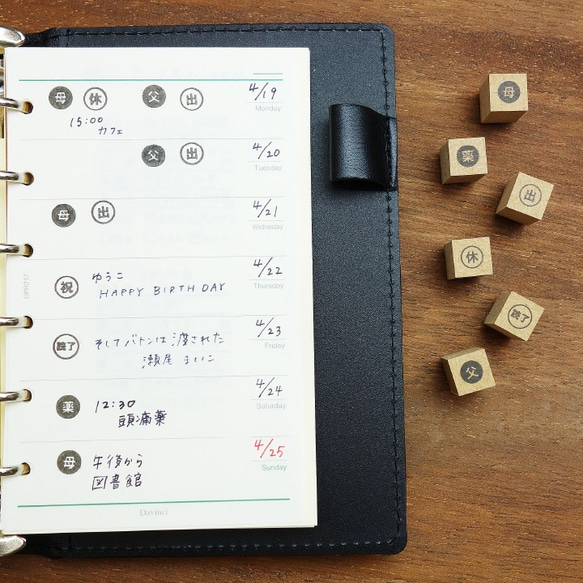 母 休 父 出 4/19
Monday
15:00
カフェ
父 出 4/20
Tuesday
母 出 4/21
Wednesday
祝 ゆうこ 4/22
HAPPY BIRTHDAY
Thursday
読了 そしてバトンは渡された 4/23
瀬尾まいこ
Friday
薬 12:30 4/24
頭痛薬
Saturday
母 午後から 4/25
図書館
Sunday
Davinci
母
薬
出
休
読了
父